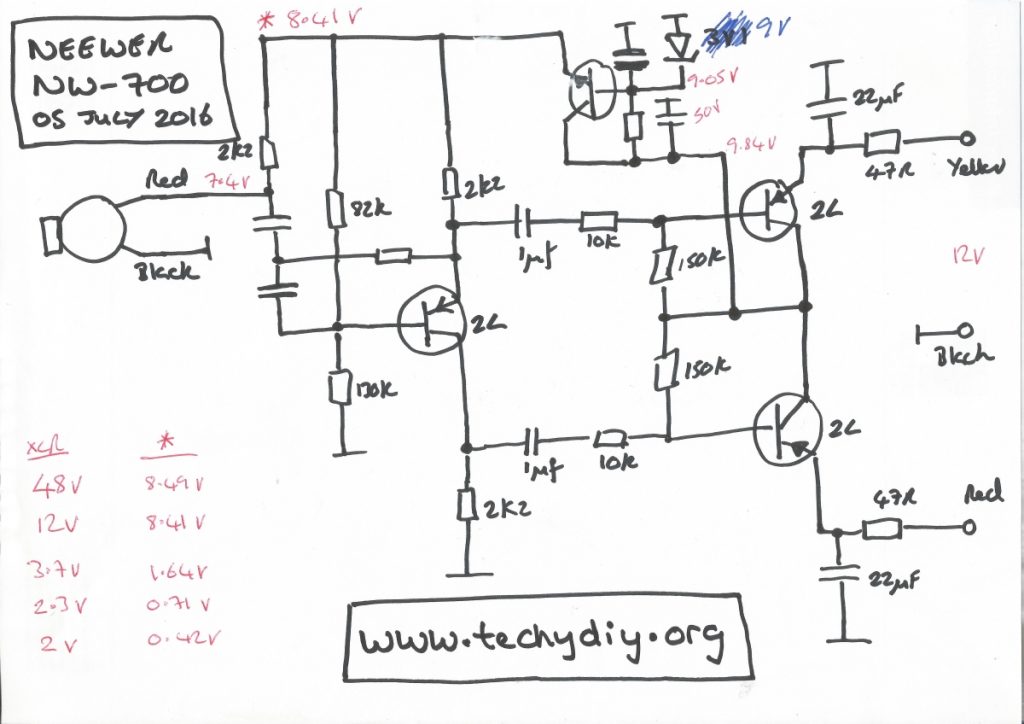 NEEWER
NW-700
05 JULY 2016
* 8.41V
3V1 9V
9.05V
50V
9.84V
22µF
47R
Yellow
2K2
Red 7.4V
Black
82K
2K2
1µf
10K
150K
2L
12V
2L
Black
130K
150K
1µf
10K
2L
2K2
47R
Red
22µF
XLR *
48V 8.49V
12V 8.41V
3.7V 1.64V
2.3V 0.71V
2V 0.42V
www.techydiy.org